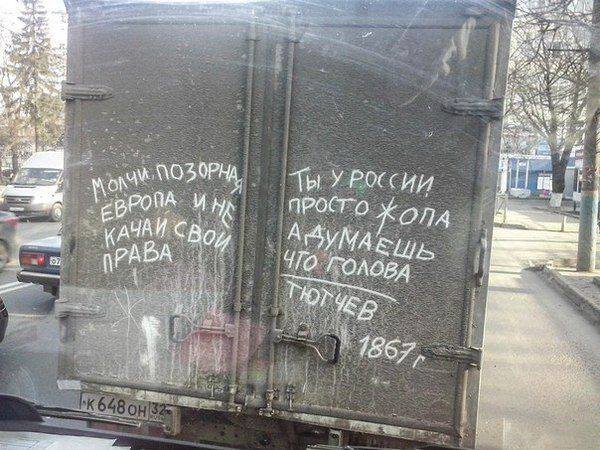 Молчи, ПОЗОРНАЯ
ЕВРОПА И НЕ
КАЧАЙ СВОИ
ПРАВА
ТЫ У РОССИИ
ПРОСТО ЖОПА
А ДУМАЕШЬ
ЧТО ГОЛОВА
ТЮТЧЕВ
1867г
К648ОН 32